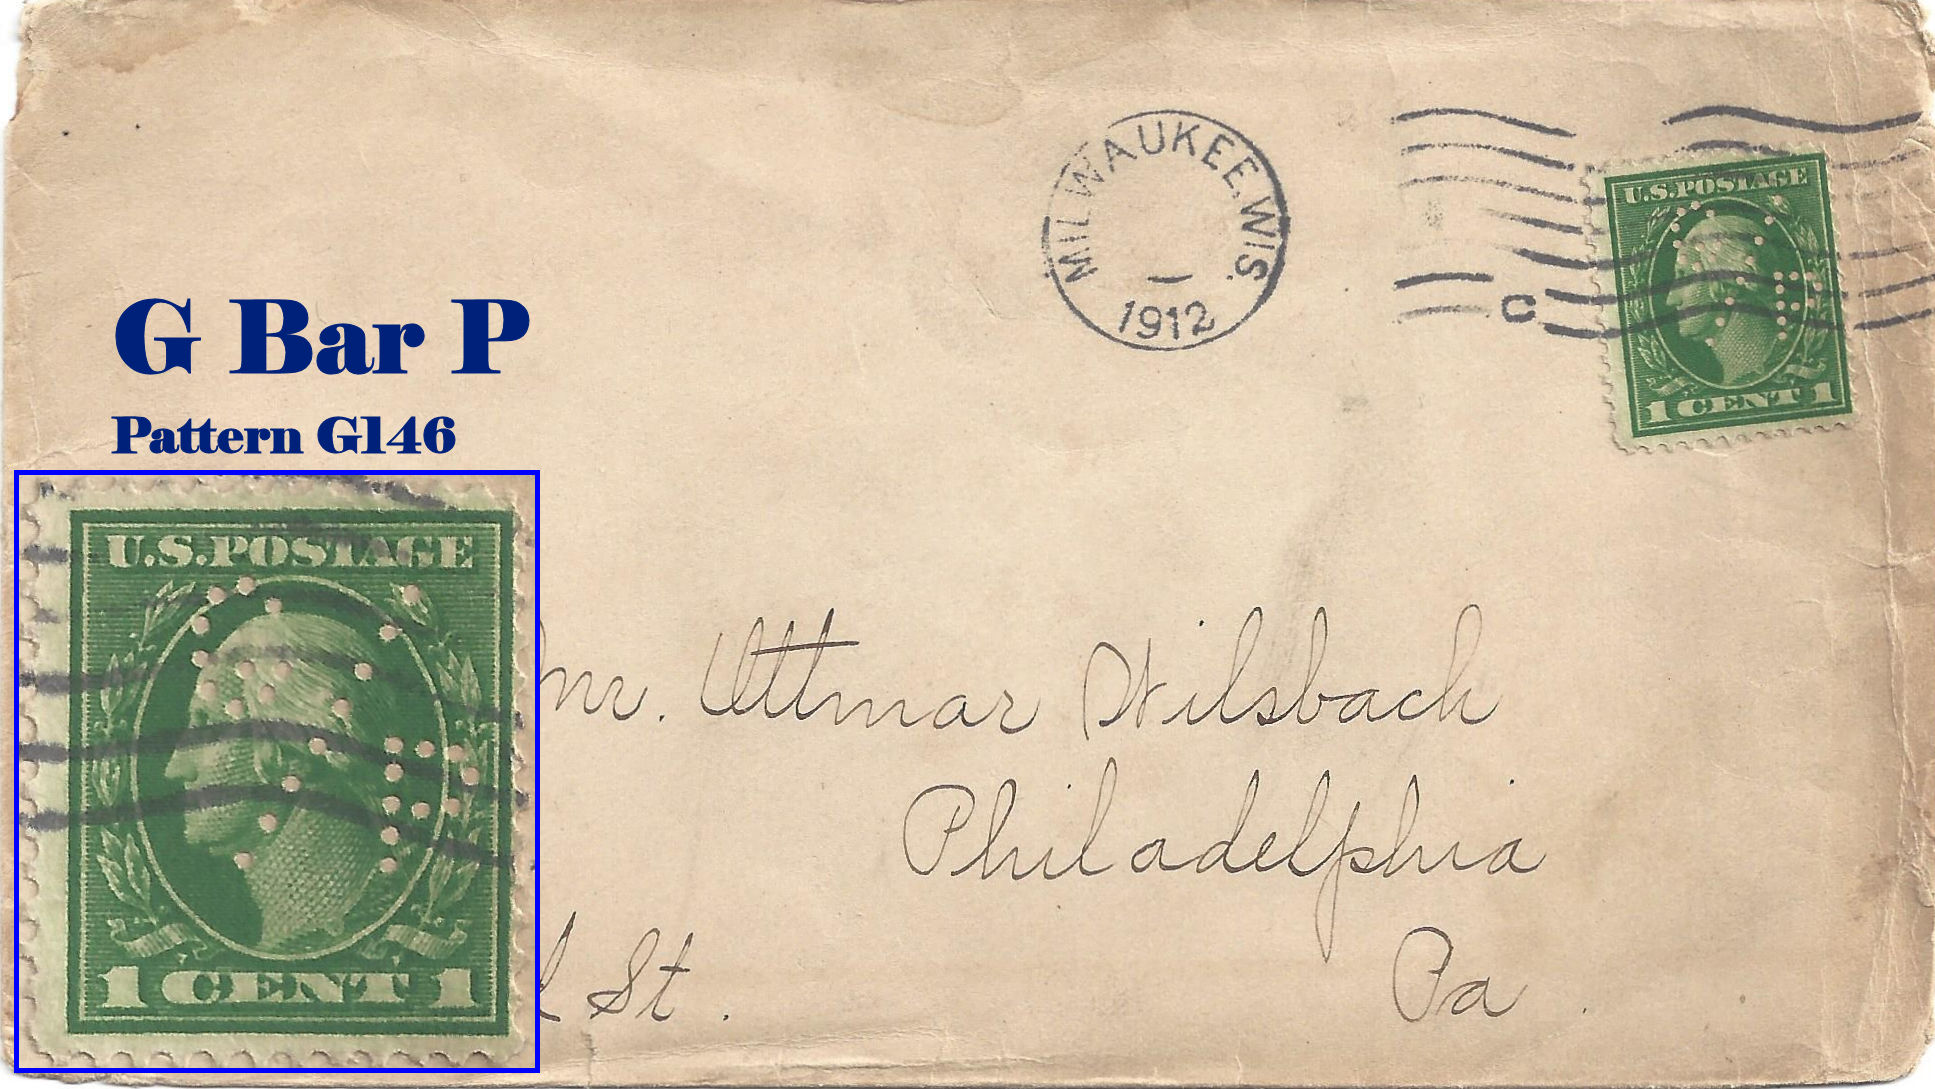 MILWAUKEE, WIS.
1912
C
U.S. POSTAGE
1 CENT 1
G Bar P
Pattern G146
U.S. POSTAGE
1 CENT 1
Mr. Uttmar Wilsbach
Philadelphia
St.
Pa